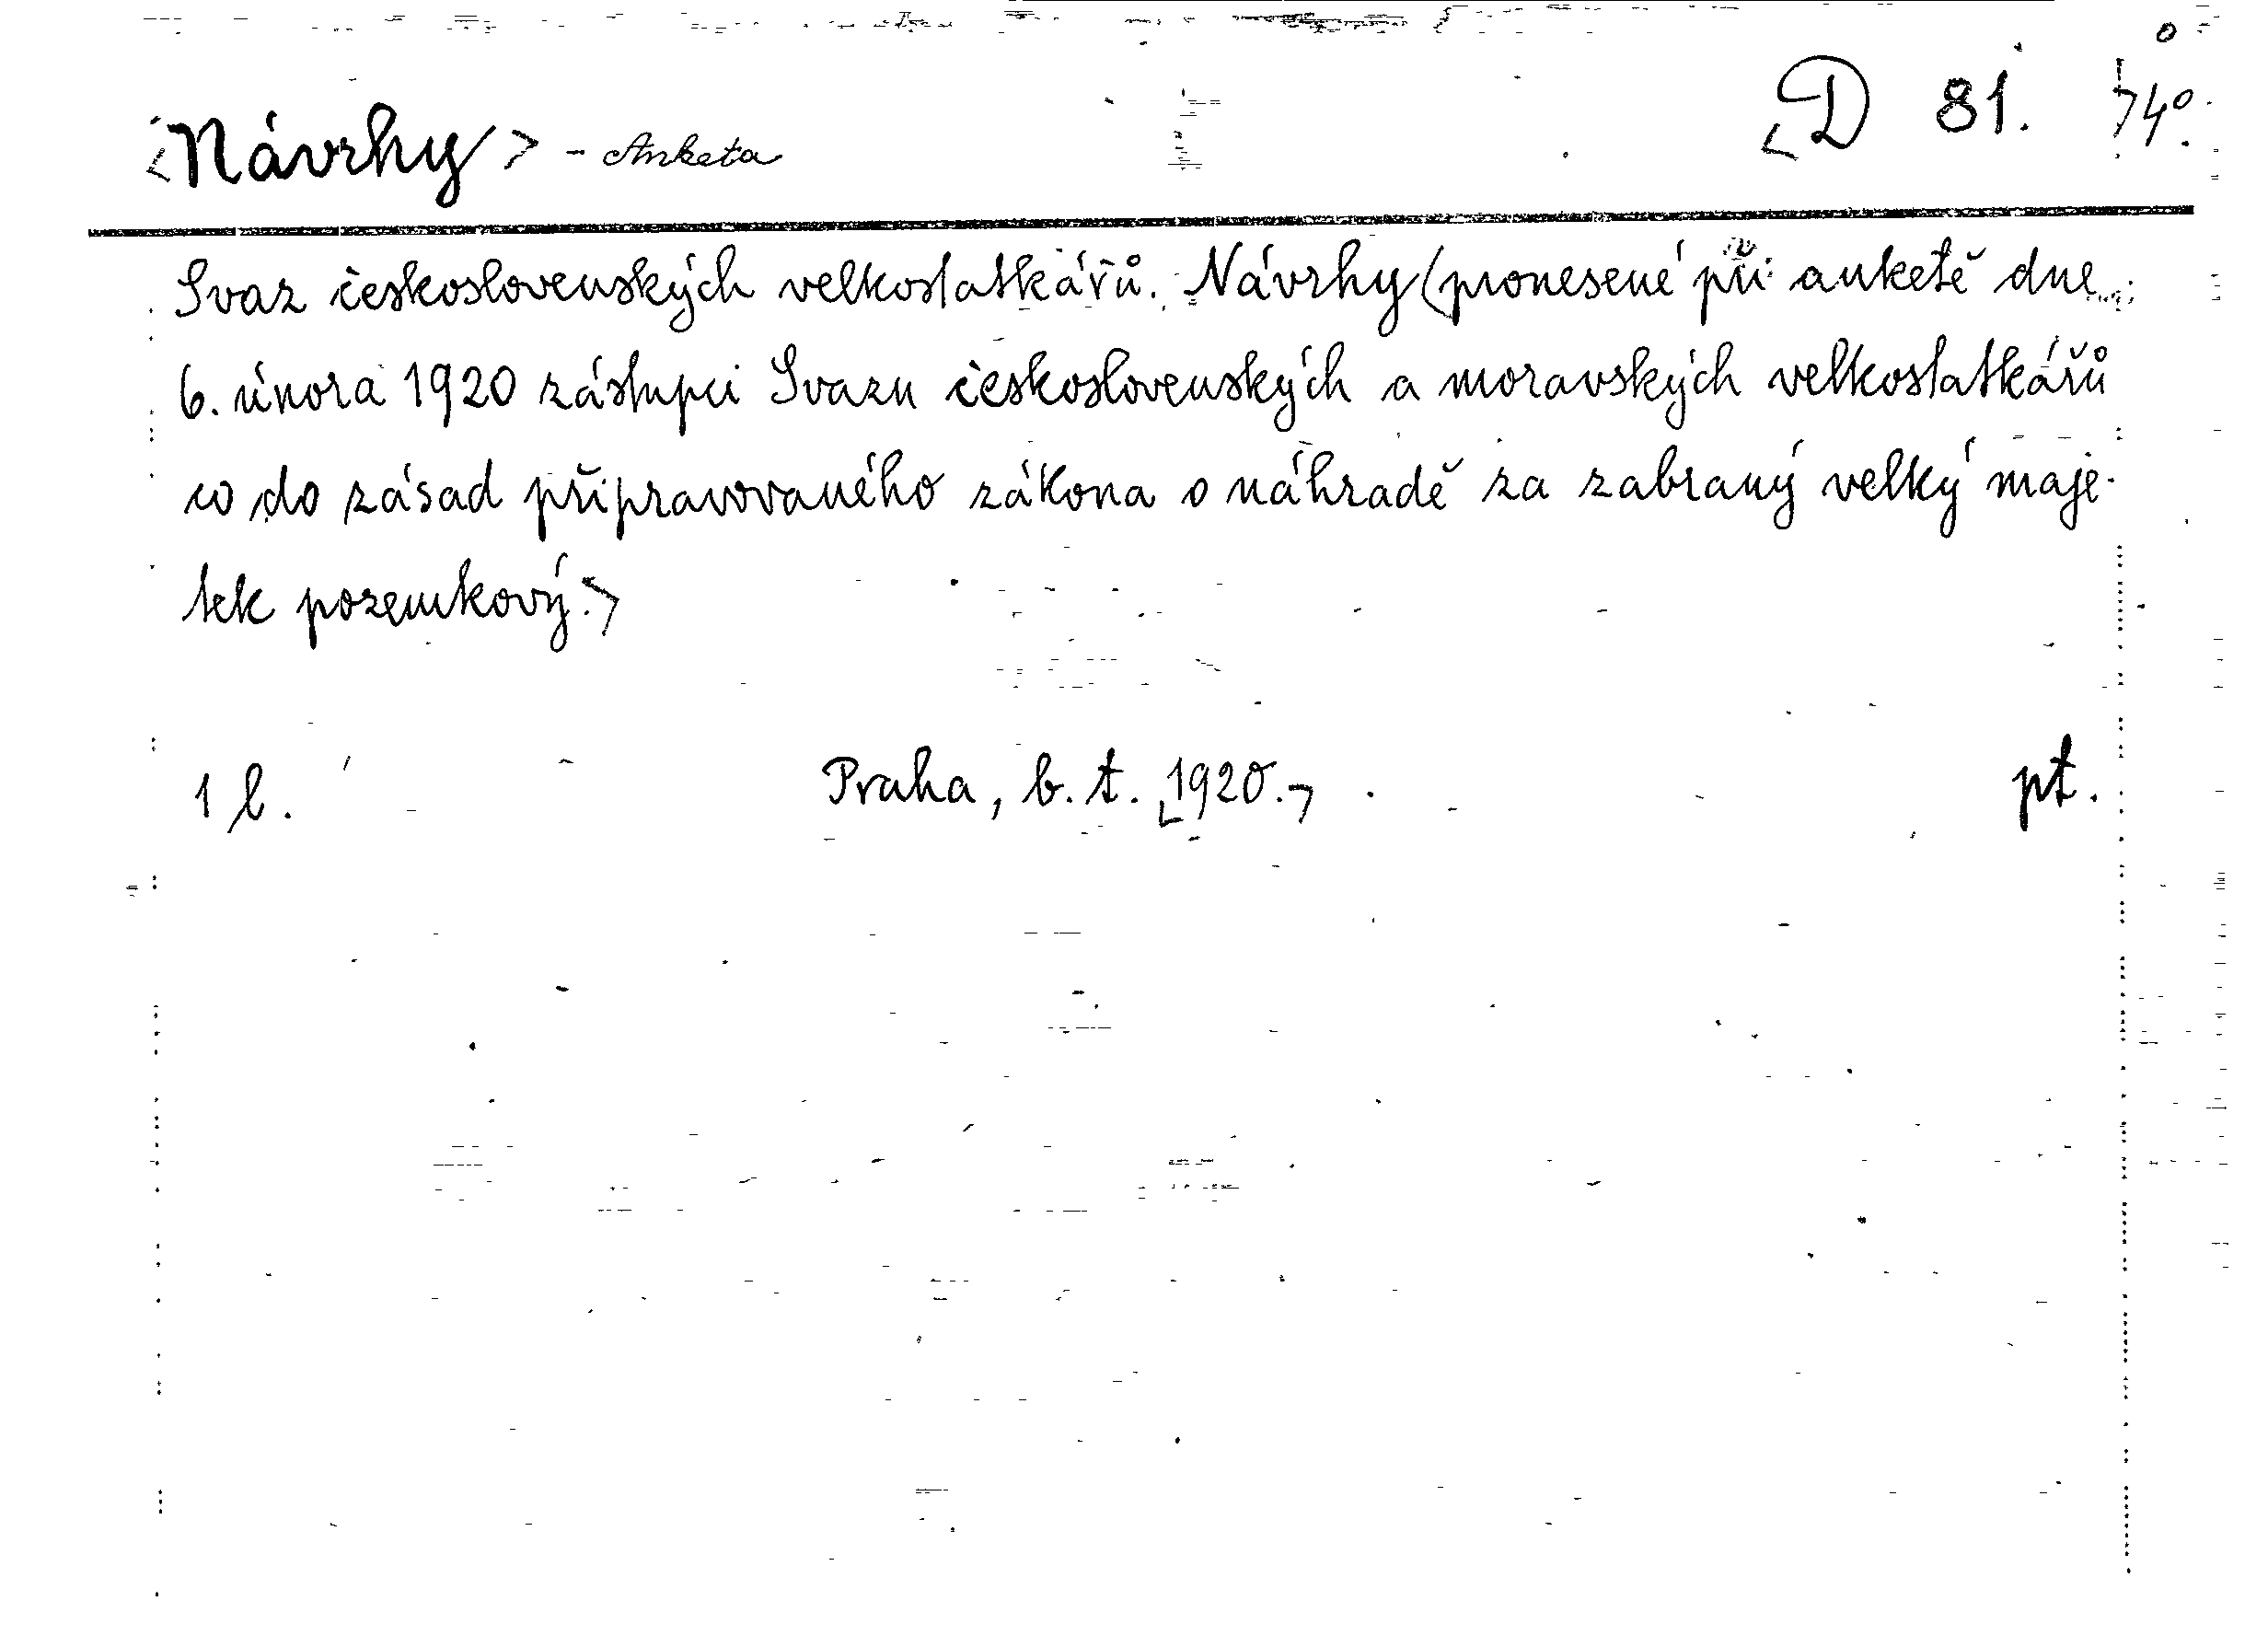 <Návrhy> - Anketa
<D 81. 74°.
Svaz československých velkostatkářů. Návrhy (pronesené při anketě dne
6. února 1920 zástupci Svazu československých a moravských velkostatkářů
co do zásad připravovaného zákona o náhradě za zabraný velký maje-
tek pozemkový.>
1 l. Praha, b. t. 1920. př.